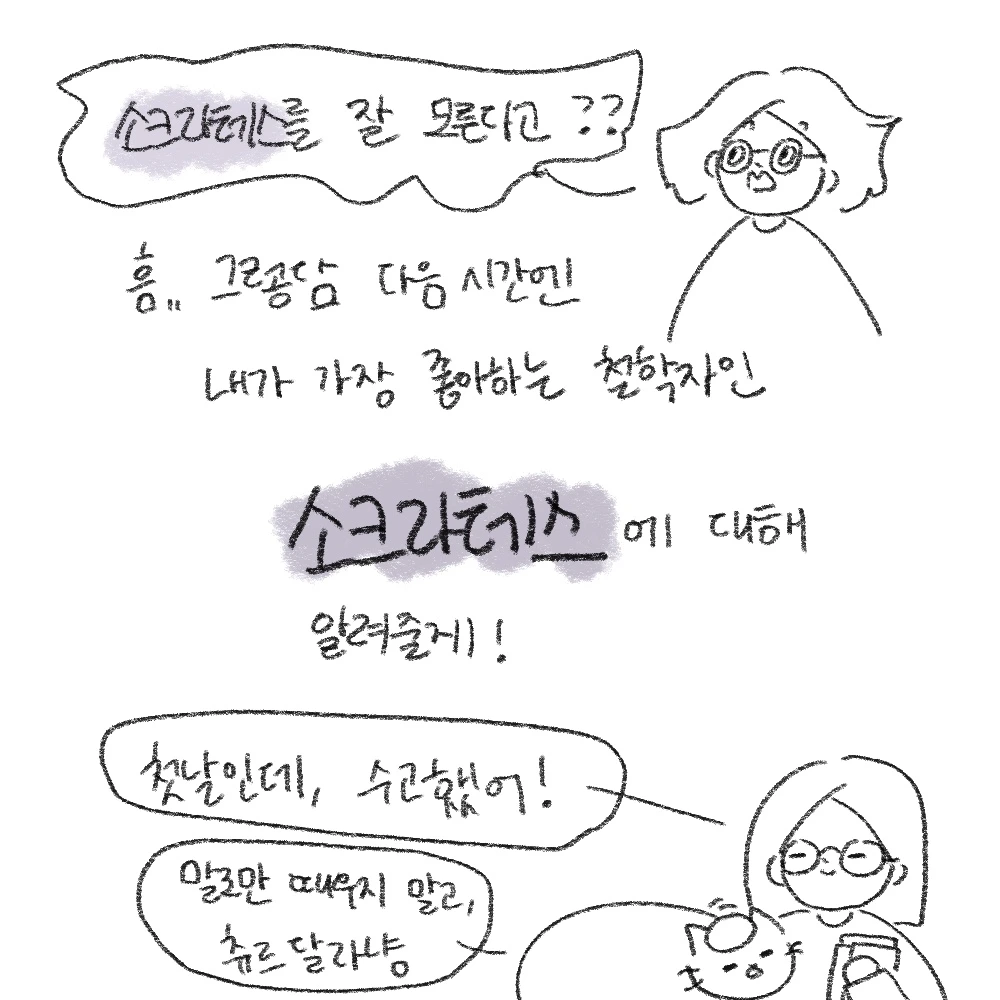 소크라테스를 잘 모른다고??
흠,, 그럼 담 다음 시간엔
내가 가장 좋아하는 철학자인
소크라테스에 대해
알려줄게!
첫날인데, 수고했어!
말로만 때우지 말고,
츄르 달라냥